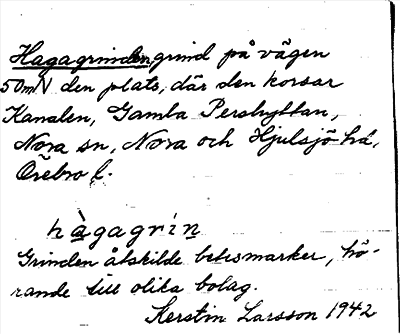 Hagagrinden grind på vägen
50 m N den plats, där den korsar
Kanalen, Gamla Pershyttan,
Nora sn, Nora och Hjulsjö hd,
Örebro l.
hàgagrín
Grinden åtskilde betesmarker, hö-
rande till olika bolag.
Kerstin Larsson 1942